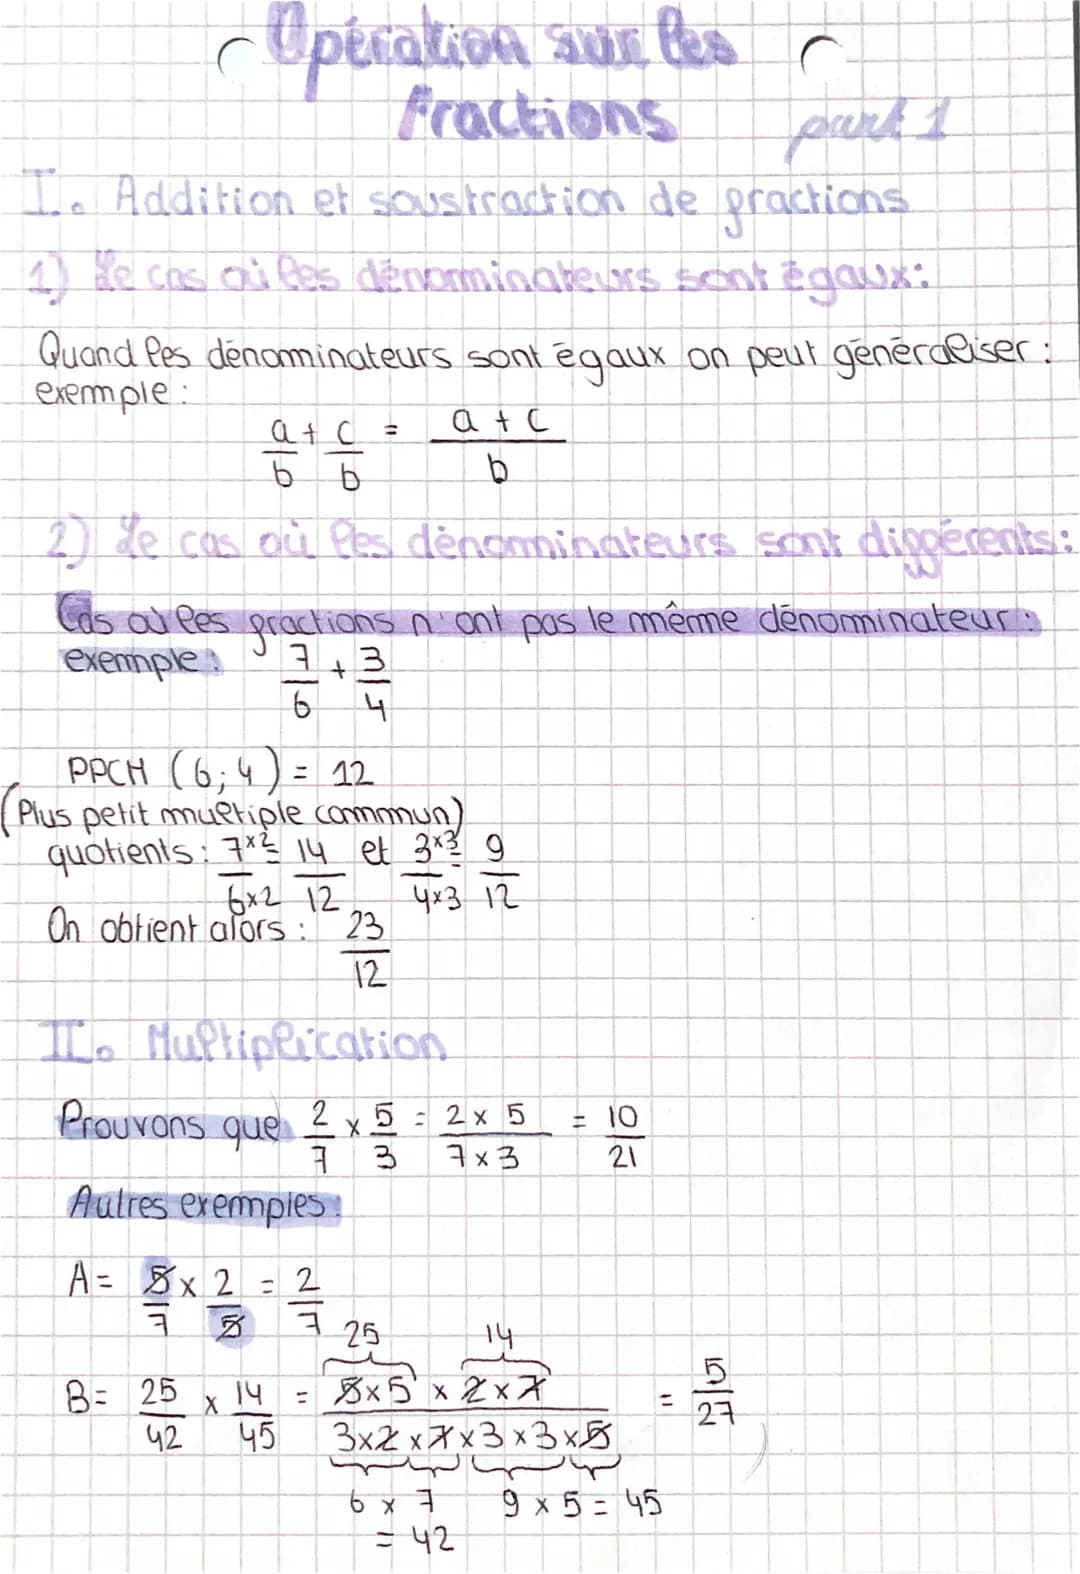 Opération sur les
fractions part 1
I. Addition et soustraction de fractions
1) Le cas où les dénominateurs sont égaux:
Quand les dénominateurs sont égaux on peut généraliser :
exemple :
a/b + c/b = (a + c)/b
2) Le cas où les dénominateurs sont différents:
Cas où les fractions n'ont pas le même dénominateur :
exemple : 7/6 + 3/4
PPCM (6; 4) = 12
(Plus petit multiple commun)
quotients : 7×2/6×2 = 14/12 et 3×3/4×3 = 9/12
On obtient alors : 23/12
II. Multiplication
Prouvons que 2/7 × 5/3 = 2 × 5/7 × 3 = 10/21
Autres exemples:
A = 5/7 × 2/5 = 2/7
25 14
B = 25/42 × 14/45 = 5×5 × 2×7/3×2×7×3×3×5 = 5/27
6 × 7 9 × 5 = 45
= 42